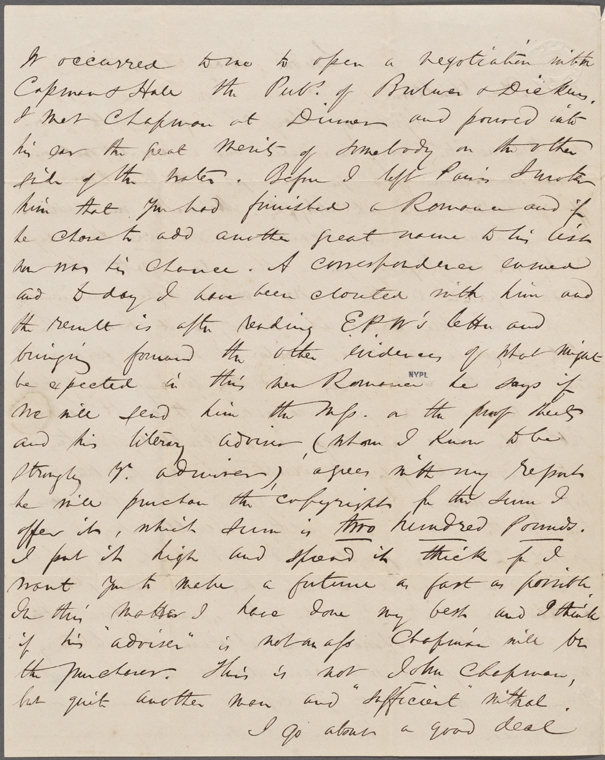 It occurred to me to open a negotiation with
Capman & Hale the Pubs. of Bulwer & Dickens.
I met Chapman at Dinner and poured into
his ear the great merits of somebody on the other
side of the water. Before I left Paris I wrote
him that you had finished a Romance and if
he chose to add another great name to his list
now was his chance. A correspondence ensued
and to day I have been closeted with him and
the result is after reading EPW's letter and
bringing forward the other evidences of what might
be expected in this new Romance he says if
NYPL
we will send him the Mss. or the proof sheets
and his literary adviser (whom I know to be
strongly yr. admirer) agrees with my reports
he will purchase the copyright for the sum I
offer it, which sum is two hundred Pounds.
I put it high and spread it thick for I
want you to make a fortune as fast as possible.
In this matter I have done my best and I think
if his "adviser" is not an ass Chapman will be
the purchaser. This is not John Chapman,
but quite another man and "sufficient" withal.
I go about a good deal